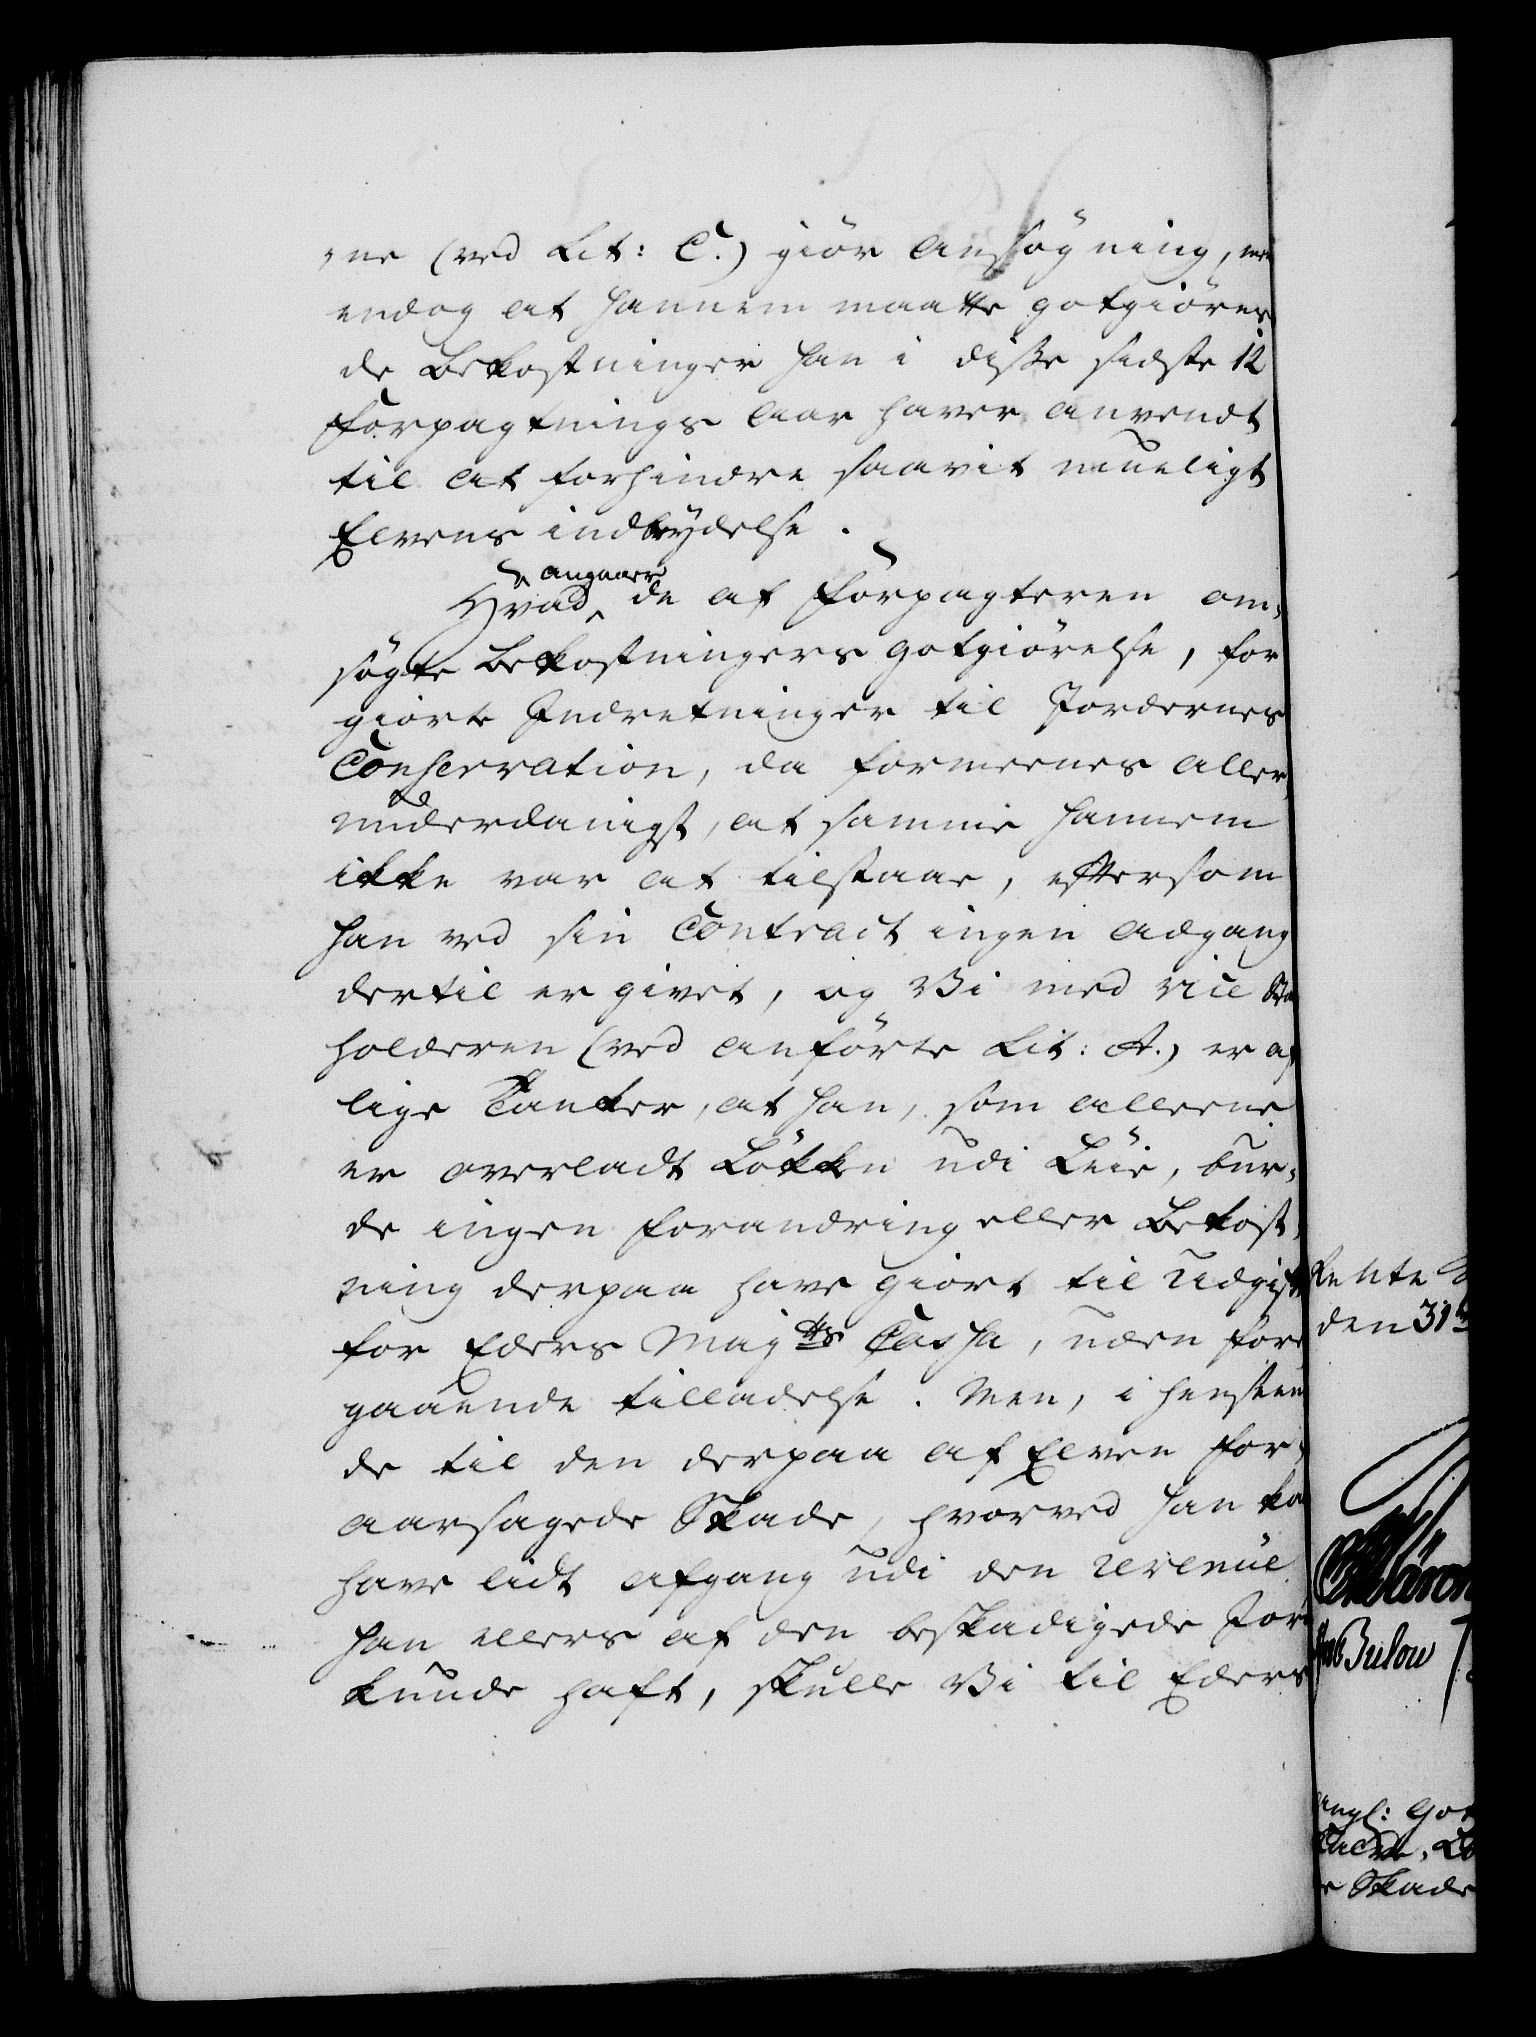 ne (ved Lit: C.) giør Ansøgning, men
endog at hannem maatte gotgiøres
de Bekostninger han i disse sidste 12
Forpagtnings Aar haver anvendt
til at forhindre saavit mueligt
Elvens indbrydelse.
Hvad angaaer de af Forpagteren om-
søgte Bekostningers gotgiørelse, for
giorte Indretninger til Jordernes
Conservation, da formeenes aller-
underdanigst, at samme hannem
ikke var at tilstaae, eftersom
han ved sin Contract ingen adgang
dertil er givet, og Vi med Vice Stat-
holderen (ved anførte Lit: A.) er af
lige Tanker, at han, som alleene
er overladt Løkken udi Leie, bur-
de ingen forandring eller Bekost-
ning derpaa have giort til Udgift
for Eders Mayts Cassa, uden fore-
gaaende tilladelse. Men, i henseen-
de til den derpaa af Elven for-
aarsagede Skade, hvorved han kan
have lidt afgang udi den Revenüe
han ellers af den beskadigede Jord
kunde haft, skulle Vi til Eders
Rente
den 31te
Bülow
angl: Got
Skade